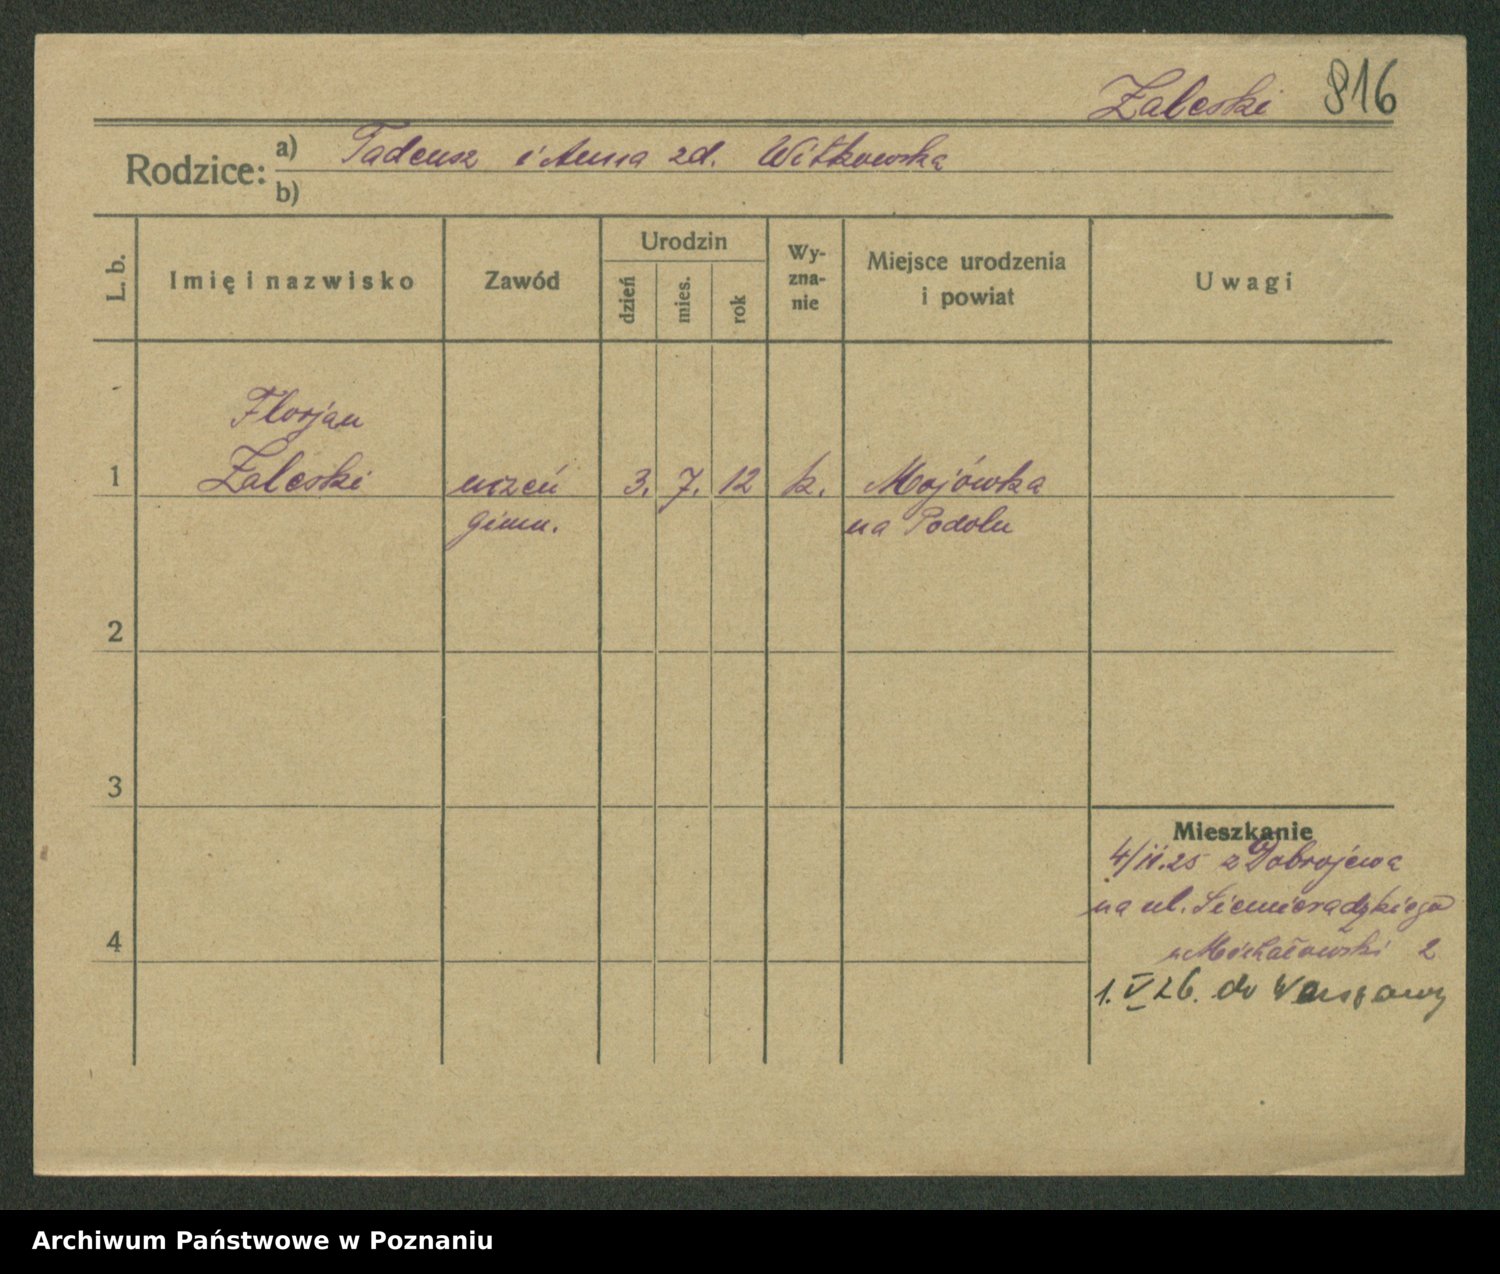 Zaleski 816
Rodzice: a) Tadeusz i Anna zd. Witkowska
b)
L. b.
Imię i nazwisko
Zawód
Urodzin
dzień
mies.
rok
Wy-
zna-
nie
Miejsce urodzenia
i powiat
Uwagi
Florjan
1 Zaleski uczeń 3. 7. 12 k. Mojówka
gimn. na Podolu
2
3
4
Mieszkanie
4/II.25 z Dobrojewa
na ul. Siemieradzkiego
Michałowski 2
1. V 26. do Warszawy
Archiwum Państwowe w Poznaniu